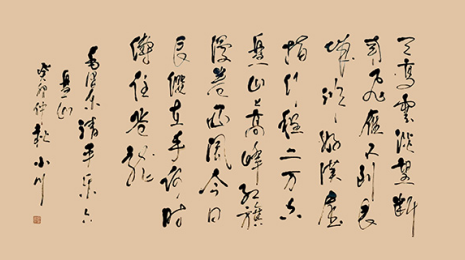 天高雲淡望斷
南飛雁不到長
城非好漢屈
指行程二万六
盤山上高峰紅旗
漫卷西風今日
長纓在手何時
縛住蒼龍
毛澤東清平樂六
盤山
癸卯仲秋小川